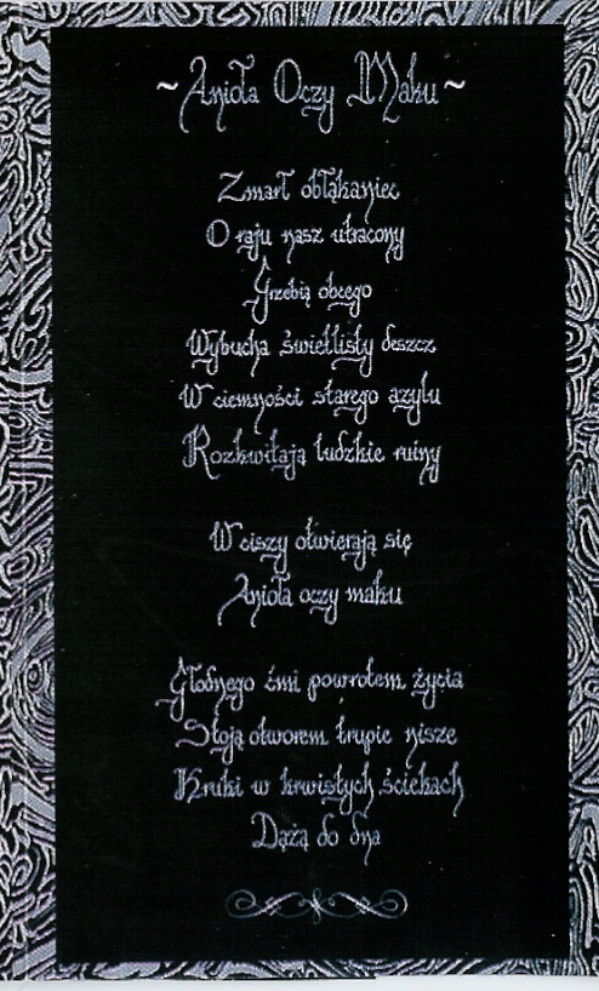 ~Anioła Oczy Maku~
Zmarł obłąkaniec
O raju nasz utracony
Grzebią obcego
Wybucha świetlisty deszcz
W ciemności starego azylu
Rozkwitają ludzkie ruiny
W ciszy otwierają się
Anioła oczy maku
Głodnego ćmi powrotem życia
Stoją otworem trupie nisze
Kruki w krwistych ściekach
Dążą do dna